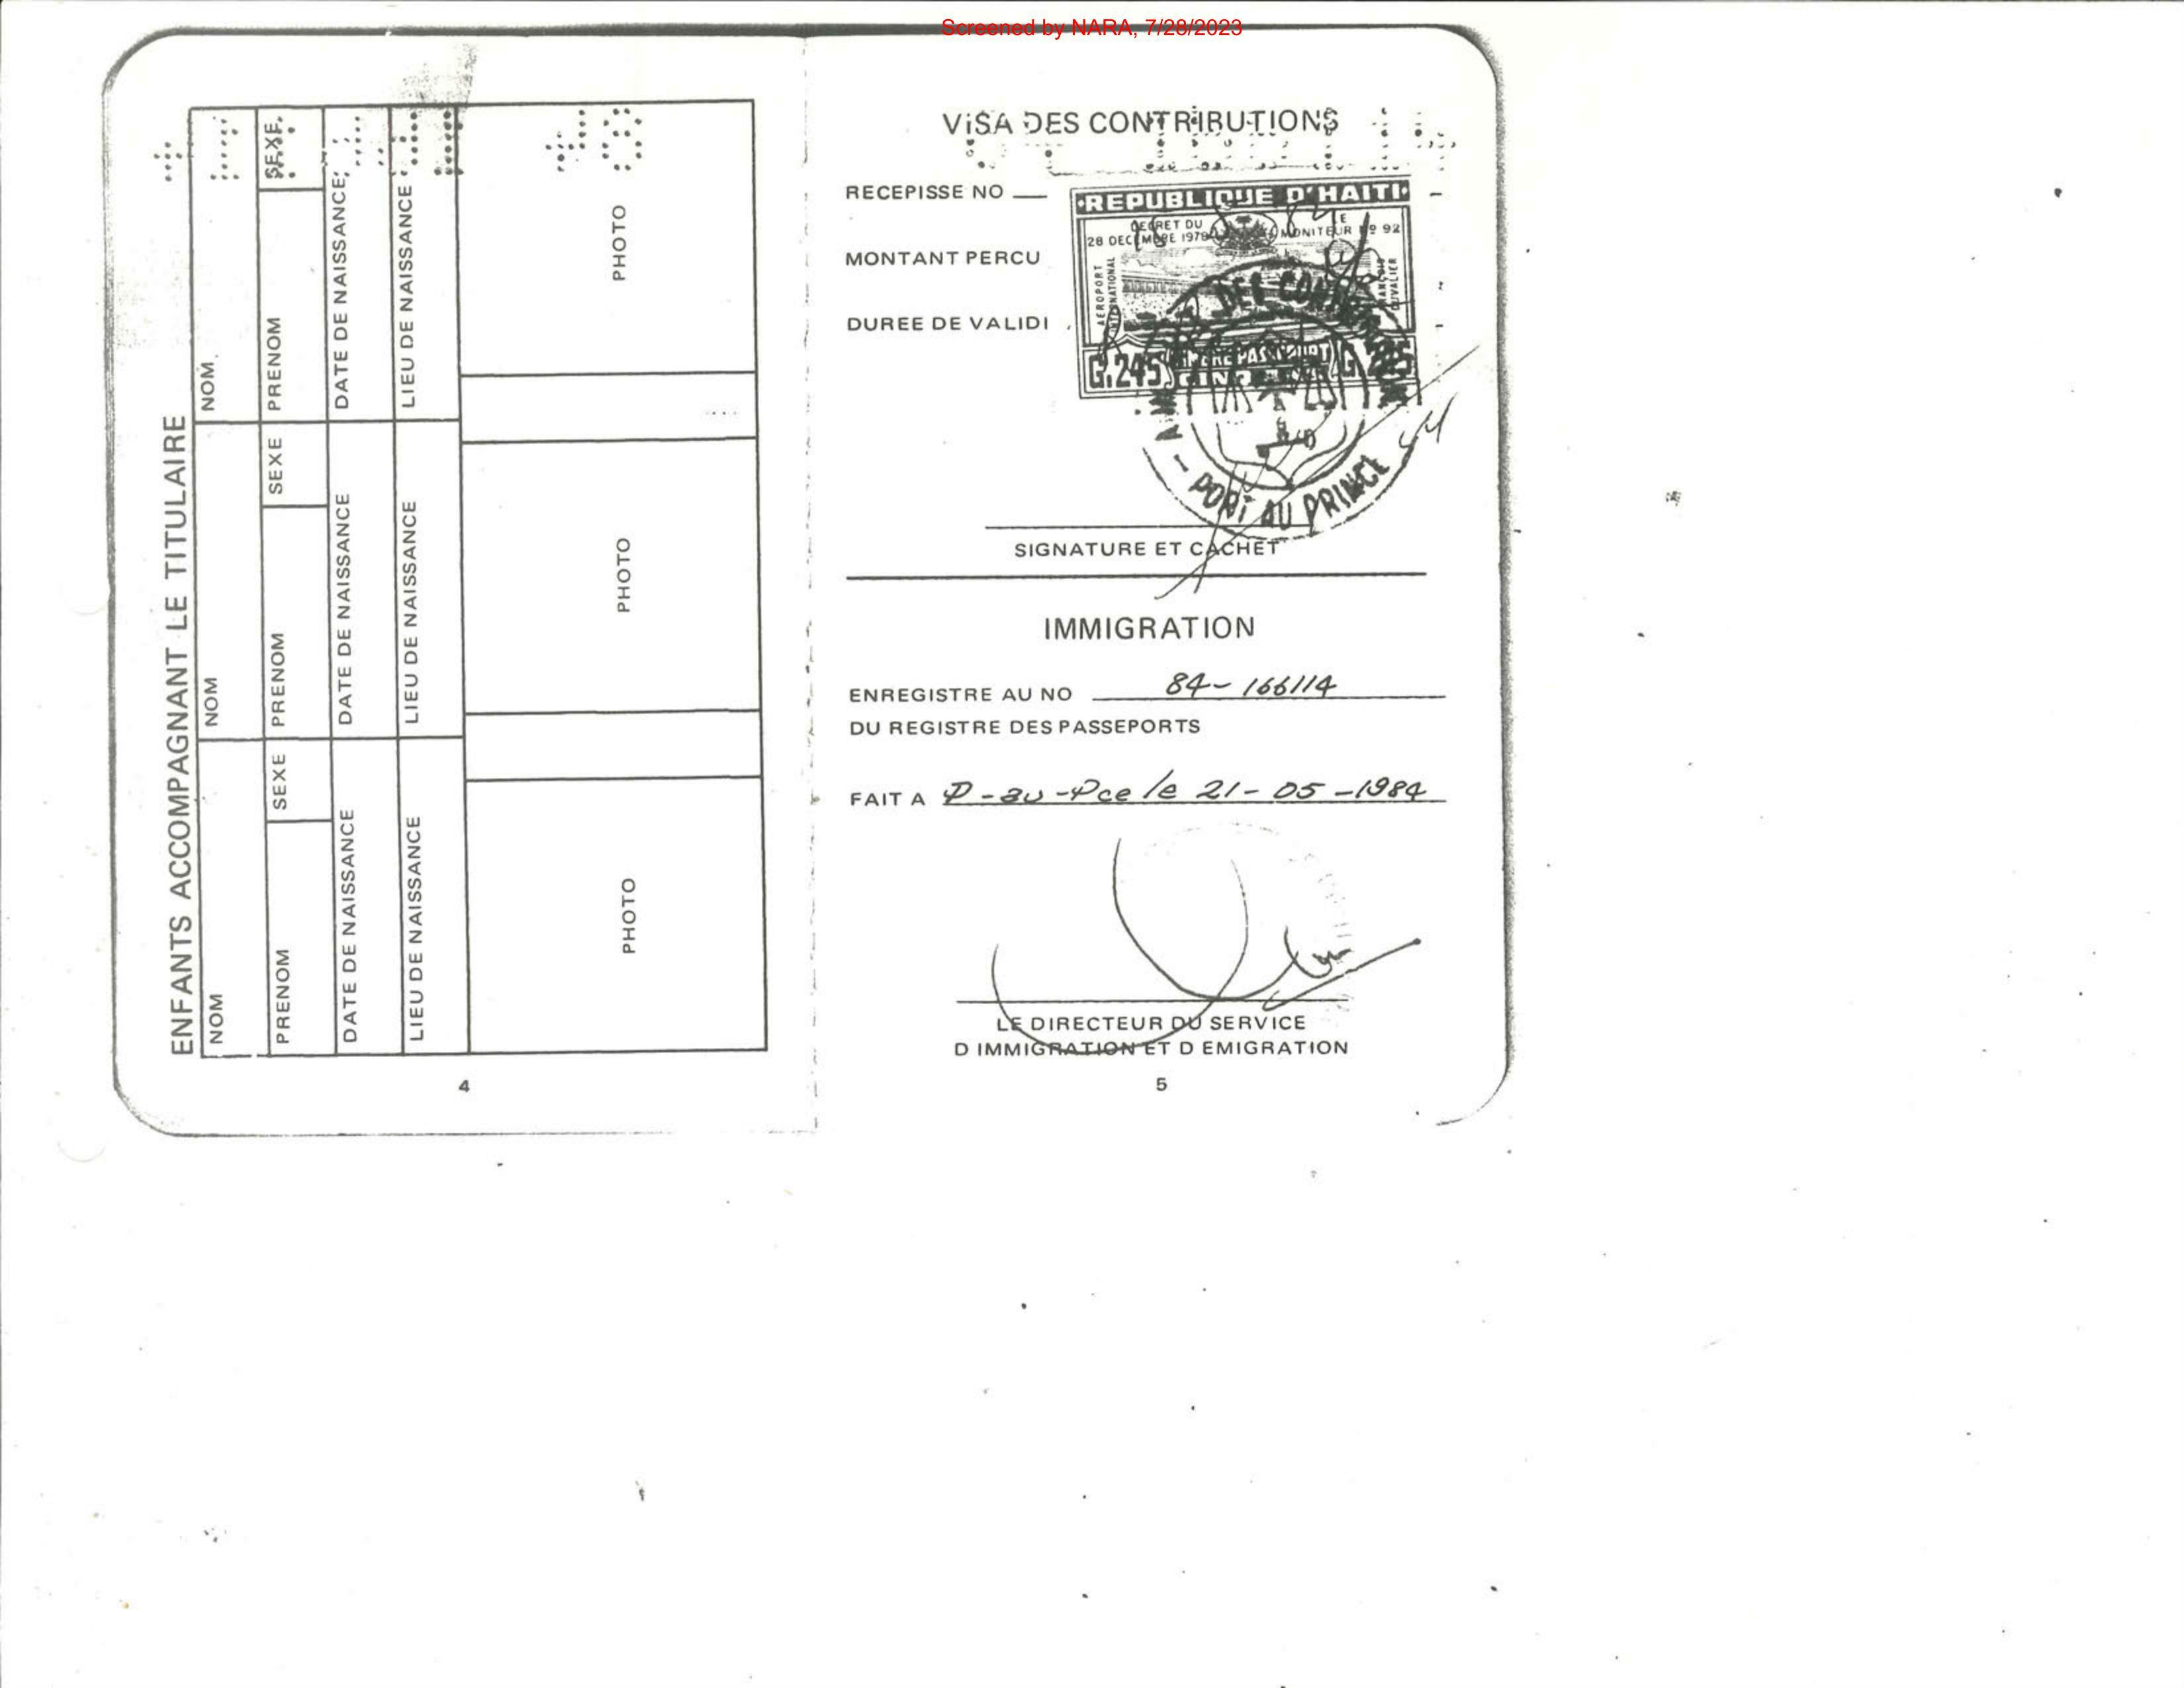 Screened by NARA, 7/28/2023
ENFANTS ACCOMPAGNANT LE TITULAIRE
NOM
PRENOM
SEXE
DATE DE NAISSANCE
LIEU DE NAISSANCE
PHOTO
NOM
PRENOM
SEXE
DATE DE NAISSANCE
LIEU DE NAISSANCE
PHOTO
NOM
PRENOM
SEXE
DATE DE NAISSANCE
LIEU DE NAISSANCE
PHOTO
4
ViSA DES CONTRIBUTIONS
RECEPISSE NO
REPUBLIQUE D'HAITI
DECRET DU
28 DECEMBRE 1978
LE
MONITEUR Nº 92
AEROPORT
INTERNATIONAL
FRANCOIS
DUVALIER
G.245
G.245
MONTANT PERCU
DUREE DE VALIDI
DES
PORT AU PRINCE
SIGNATURE ET CACHET
IMMIGRATION
ENREGISTRE AU NO 84-166114
DU REGISTRE DES PASSEPORTS
FAIT A P-au-Pce le 21-05-1984
LE DIRECTEUR DU SERVICE
D IMMIGRATION ET D EMIGRATION
5